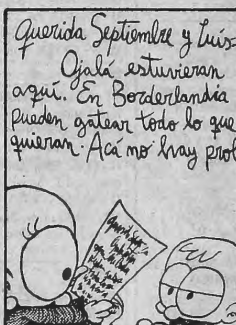 Querida Septiembre y Luis:
Ojalá estuvieran
aquí. En Borderlandia
pueden gatear todo lo que
quieran. Acá no hay prob